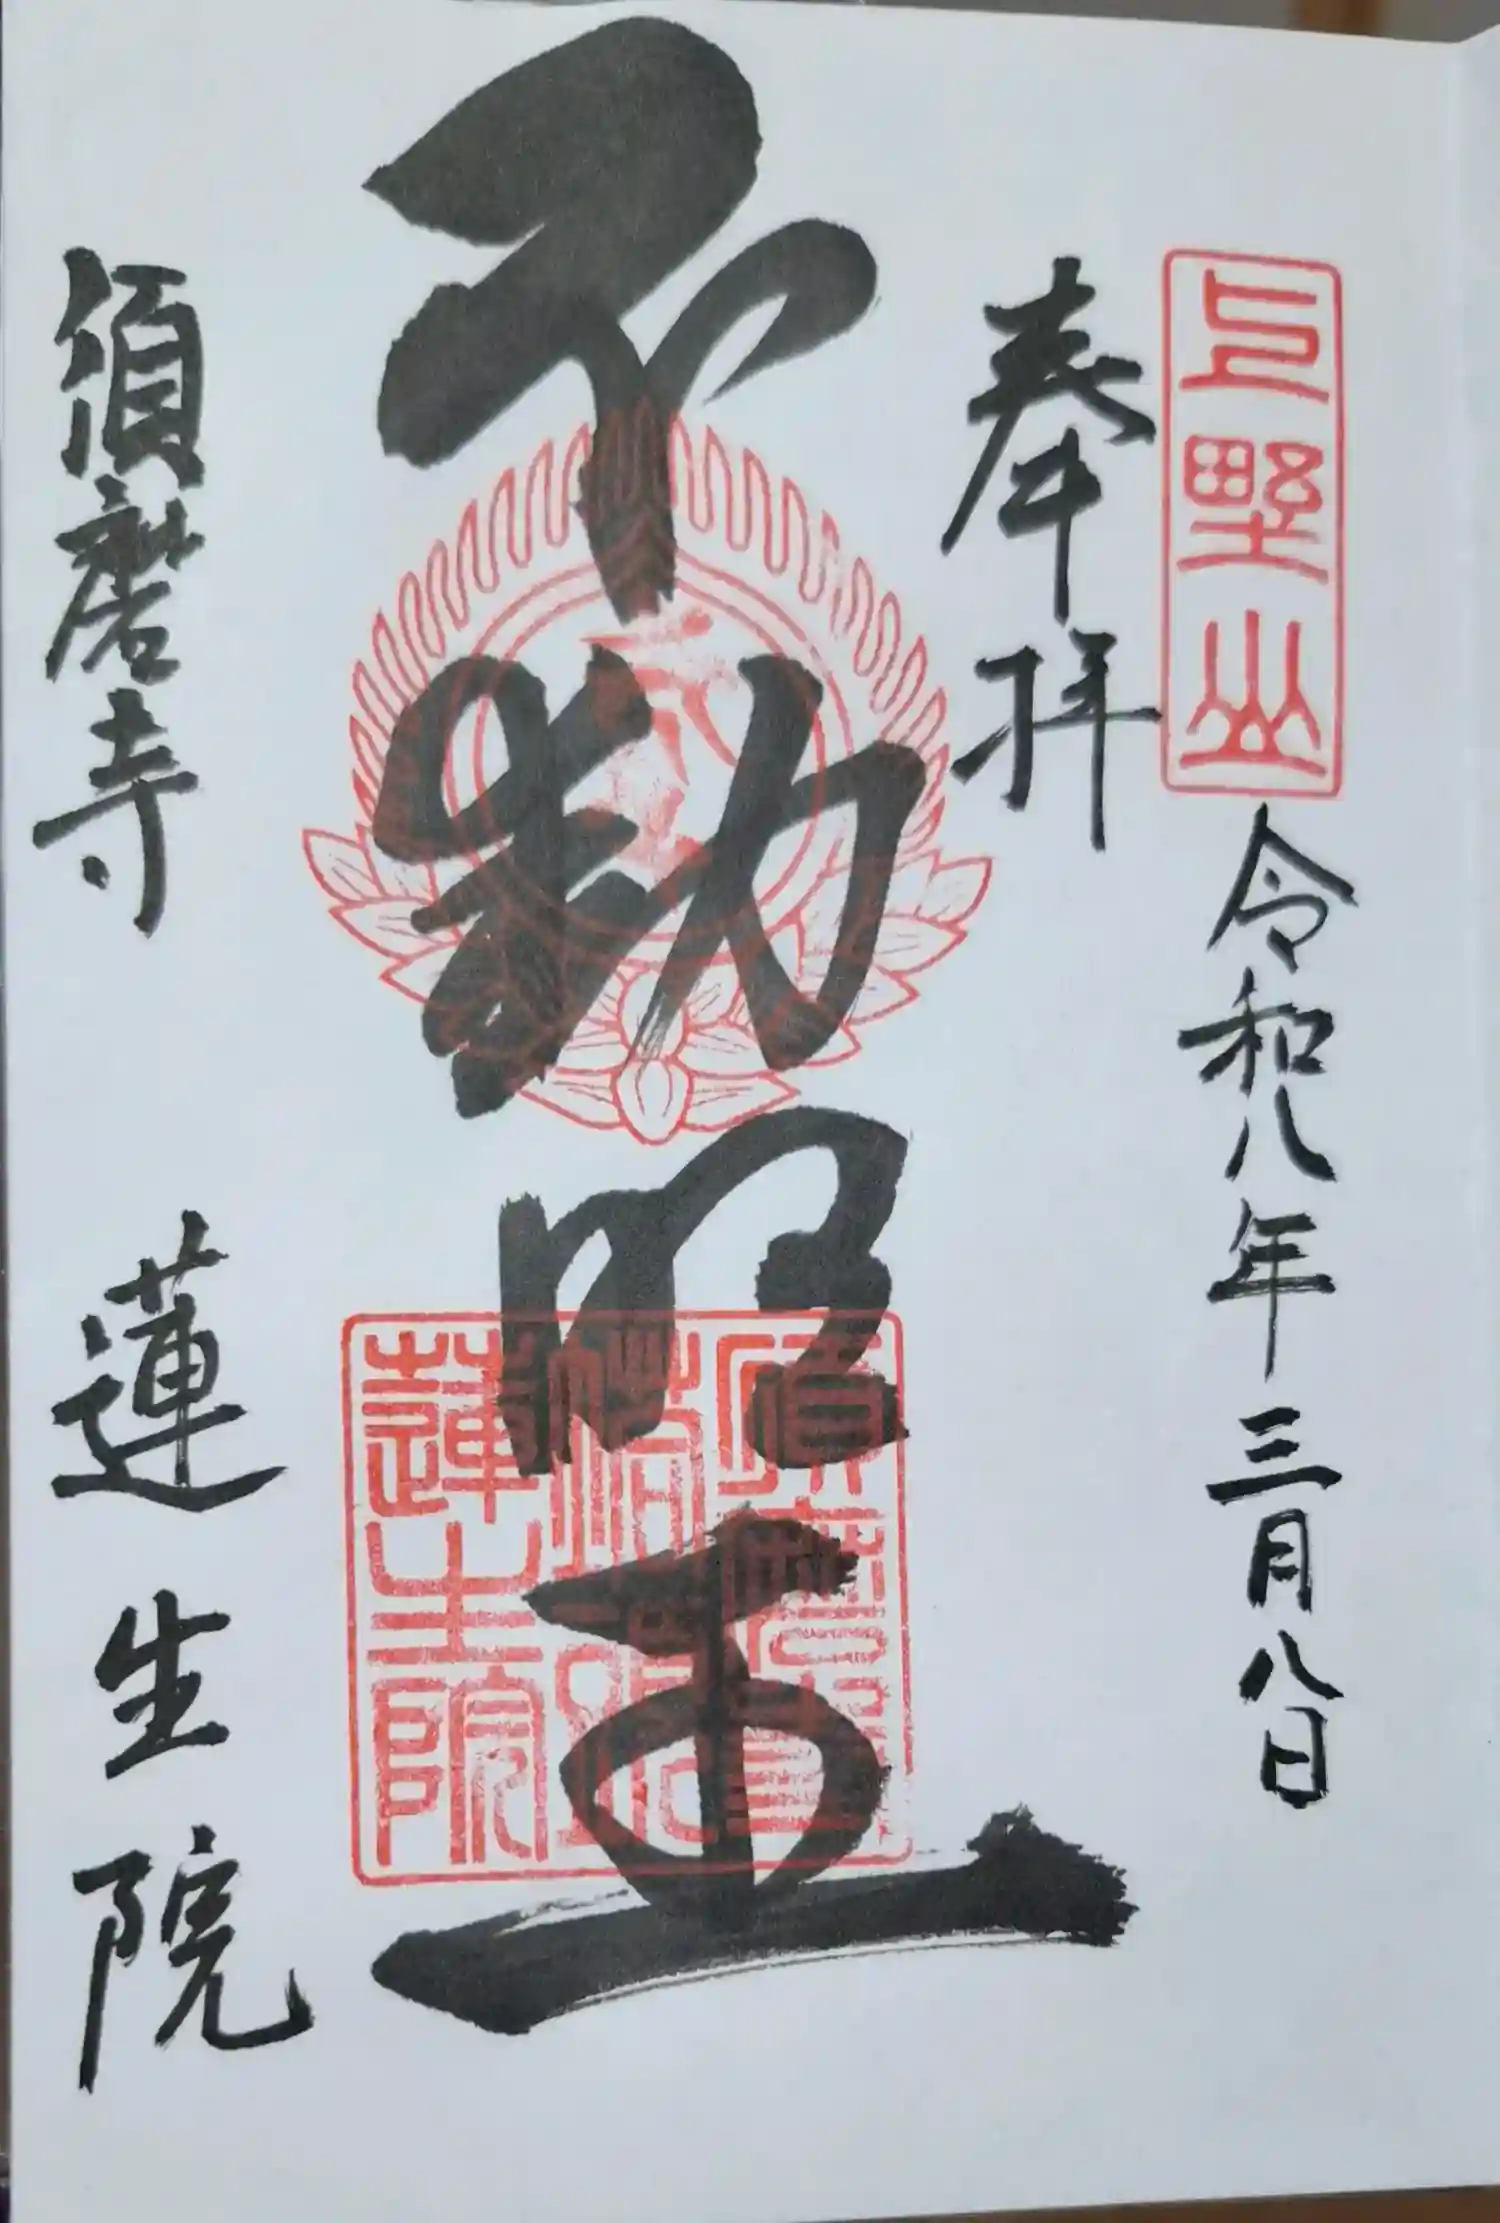 上野山
奉拝
令和八年三月八日
不動明王
須磨寺
蓮生院
蓮生院